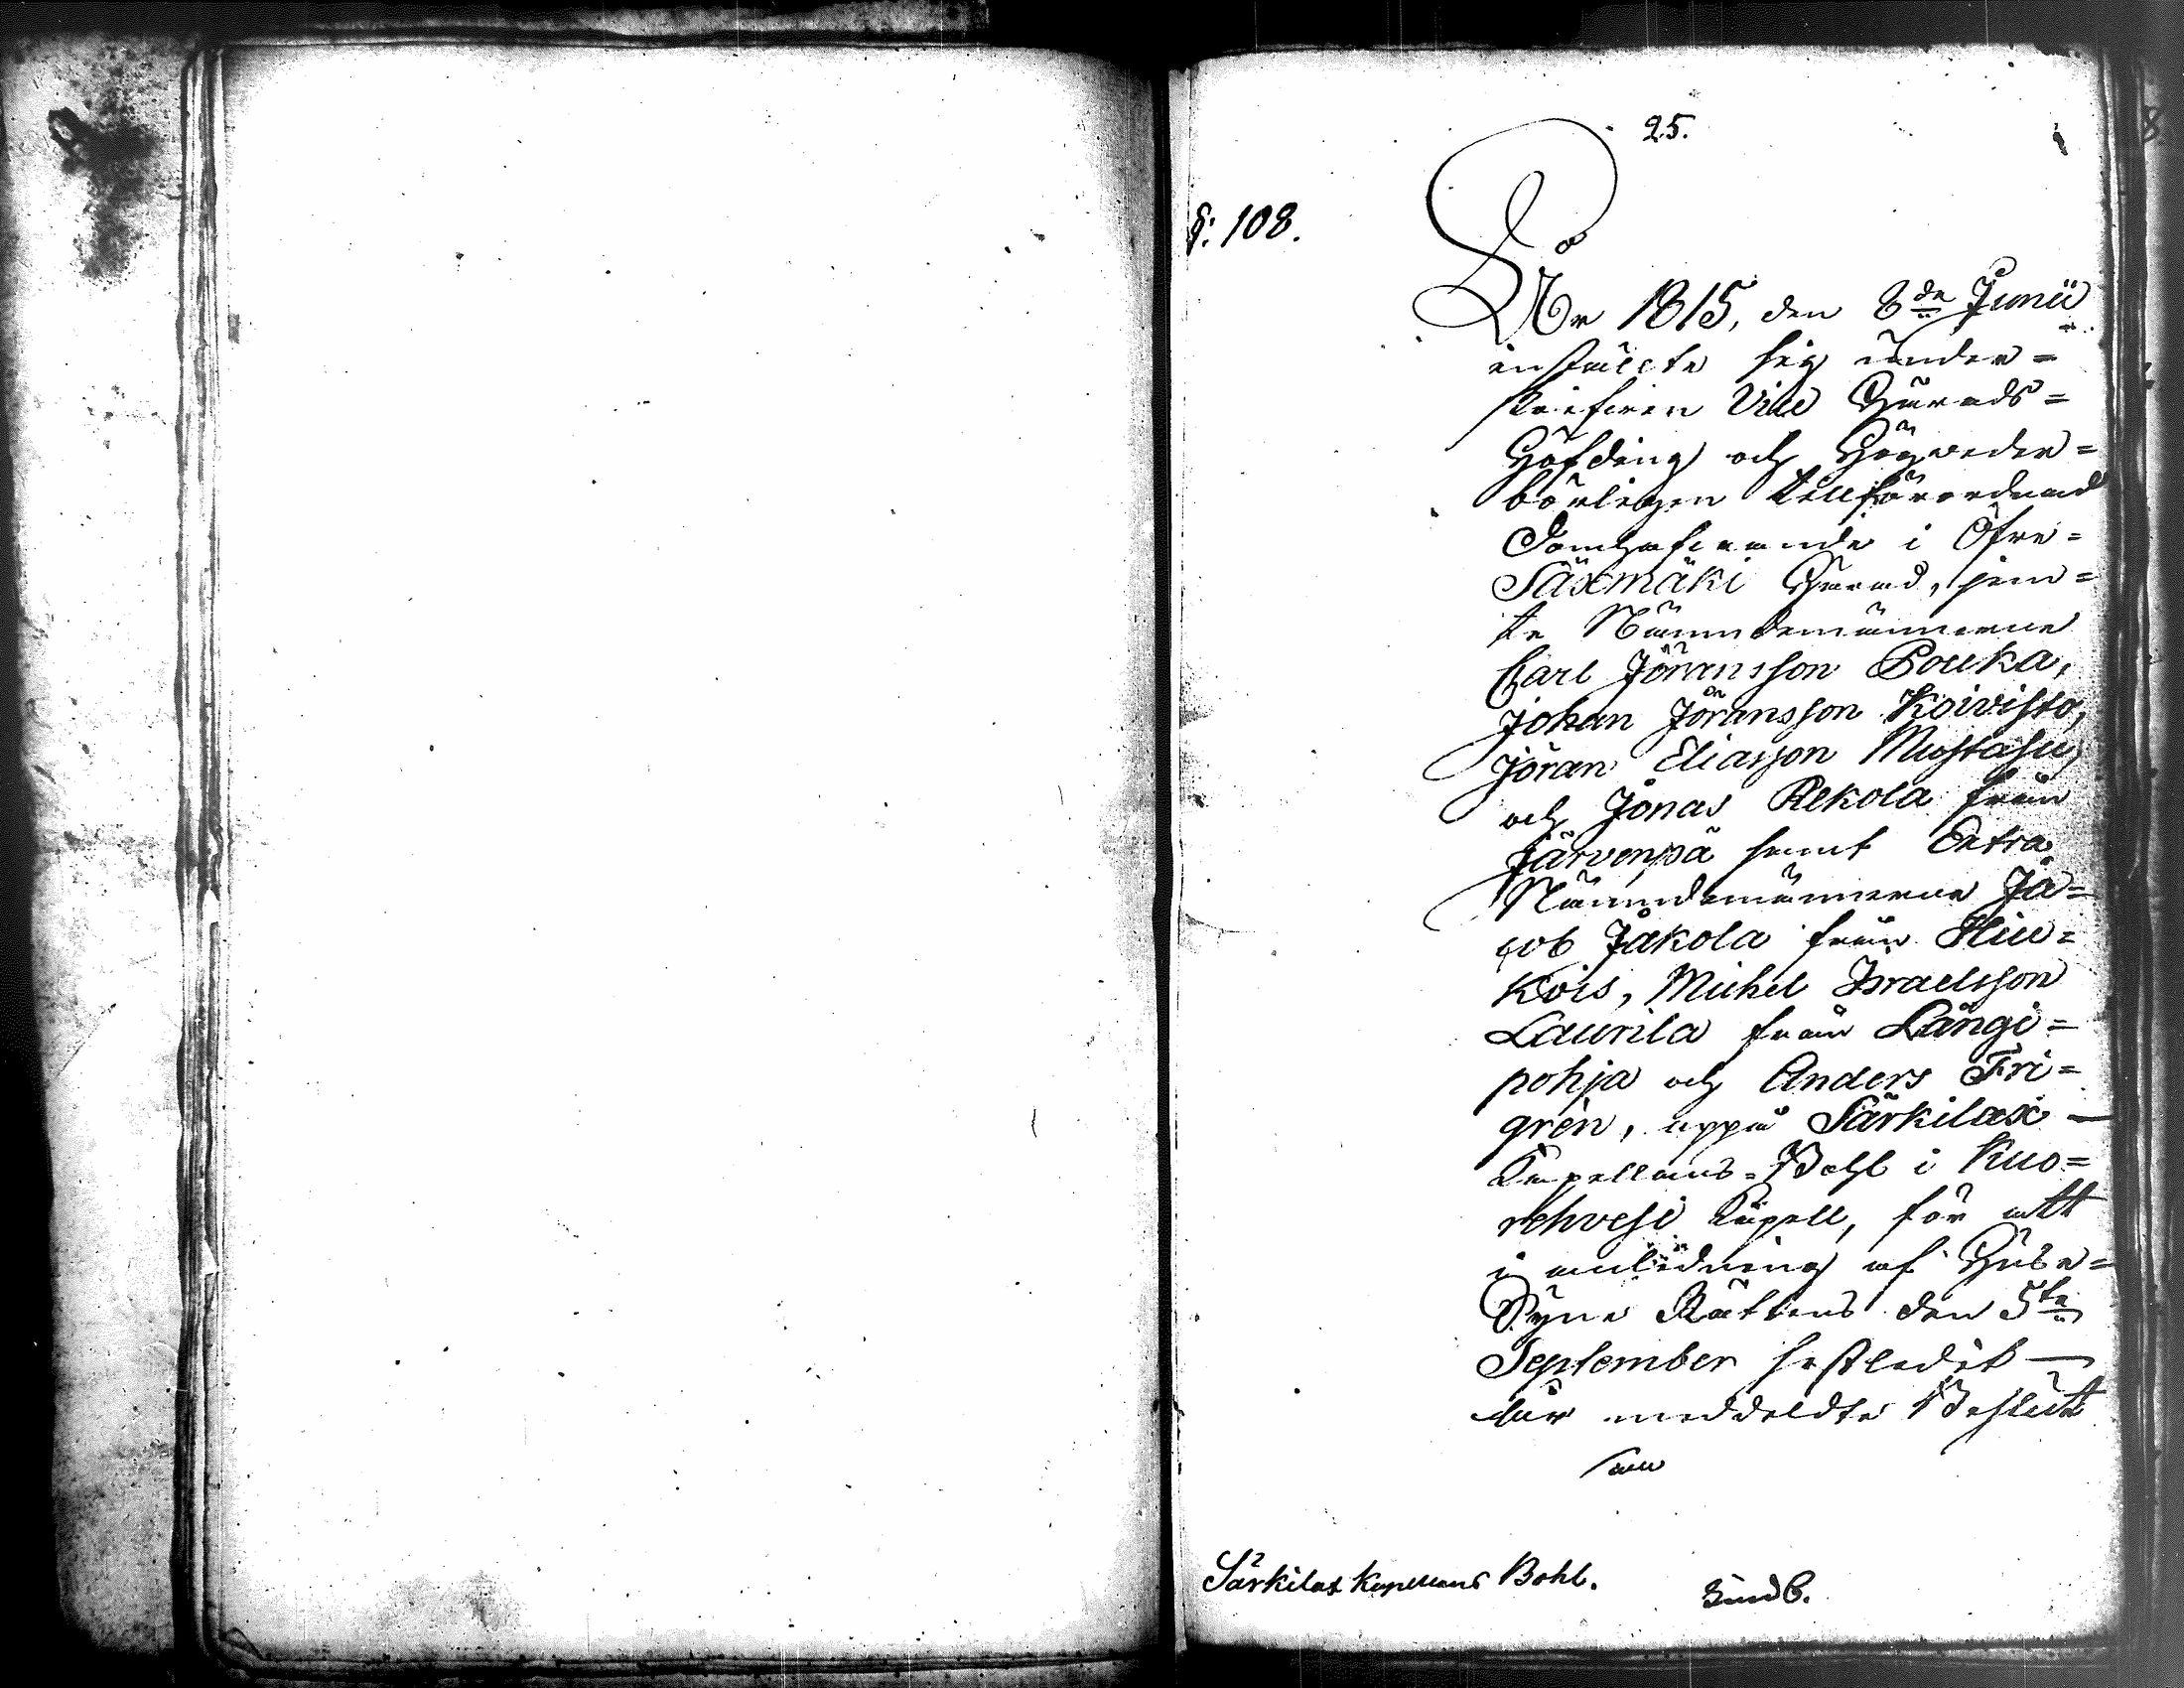 25.
§: 108.
År 1815, den 8de Junii
instälte sig under=
skrifven Vice Härads=
Höfding och Högveder=
börligen tillförordnad
Domhafvande i Öfre=
Säxmäki Härad, jem=
te Nämndemännerne
Carl Jöransson Pouka,
Johan Jöransson Koivisto,
Jöran Eliasson Mustasu,
och Jonas Rekola från
Järvenpä samt Extra
Nämndemännerne Ja=
cob Jakola från Hiu=
kois, Michel Israelsson
Laurila från Längi=
pohja och Anders Fri=
grèn, uppå Särkilax
Capellans=Bohl i Kuo=
rehvesi Capell, för att
i anledning af Huse=
Syne Rättens den 5te
September sistledit
der meddeldte Beslut
Särkilax Kapellans Bohl.